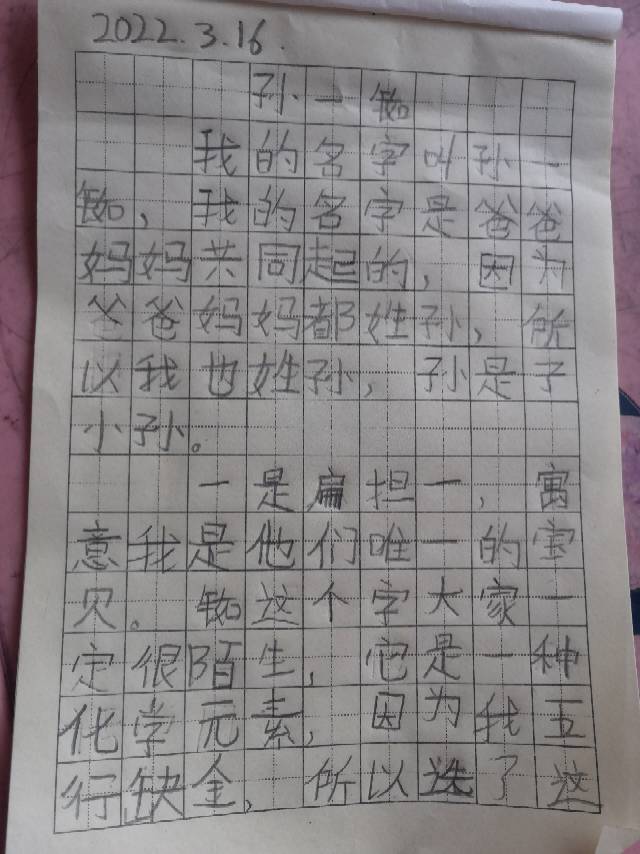 2022.3.16.
孙一铷
我的名字叫孙一
铷，我的名字是爸爸
妈妈共同起的，因为
爸爸妈妈都姓孙，所
以我也姓孙，孙是子
小孙。
一是扁担一，寓
意我是他们唯一的宝
贝。铷这个字大家一
定很陌生，它是一种
化学元素，因为我五
行缺金，所以选了这